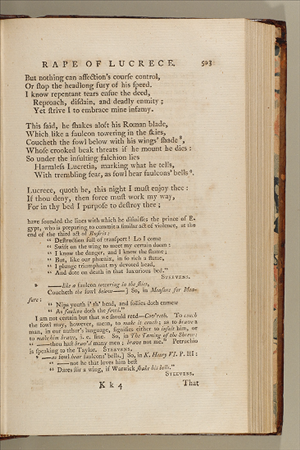 RAPE OF LUCRECE. 503
But nothing can affection's course control,
Or stop the headlong fury of his speed.
I know repentant tears ensue the deed,
Reproach, disdain, and deadly enmity;
Yet strive I to embrace mine infamy.
This said, he shakes aloft his Roman blade,
Which like a faulcon towering in the skies,
Coucheth the fowl below with his wings' shade,
Whose crooked beak threats if he mount he dies:
So under the insulting falchion lies
Harmless Lucretia, marking what he tells,
With trembling fear, as fowl hear faulcons' bells.
Lucrece, quoth he, this night I must enjoy thee:
If thou deny, then force must work my way,
For in thy bed I purpose to destroy thee;
have founded the lines with which he dismisses the prince of E-
gypt, who is preparing to commit a similar act of violence, at the
end of the third act of Busiris:
" Destruction full of transport! Lo I come
" Swift on the wing to meet my certain doom:
" I know the danger, and I know the shame;
" But, like our phœnix, in so rich a flame
" I plunge triumphant my devoted head,
" And dote on death in that luxurious bed."
STEEVENS.
—like a faulcon towering in the skies,
Coucheth the fowl below—] So, in Measure for Mea-
sure:
" Nips youth i' th' head, and follies doth enmew
" As faulcon doth the fowl."
I am not certain but that we should read—Cov'reth. To couch
the fowl may, however, mean, to make it couch; as to brave a
man, in our author's language, signifies either to insult him, or
to make him brave, i. e. fine. So, in The Taming of the Shrew:
"—thou hast brav'd many men; brave not me." Petruchio
is speaking to the Taylor. STEEVENS.
—as fowl hear faulcons' bells.] So, in K. Henry VI. P. III:
"—not he that loves him best
" Dares stir a wing, if Warwick shake his bells."
STEEVENS.
K k 4 That